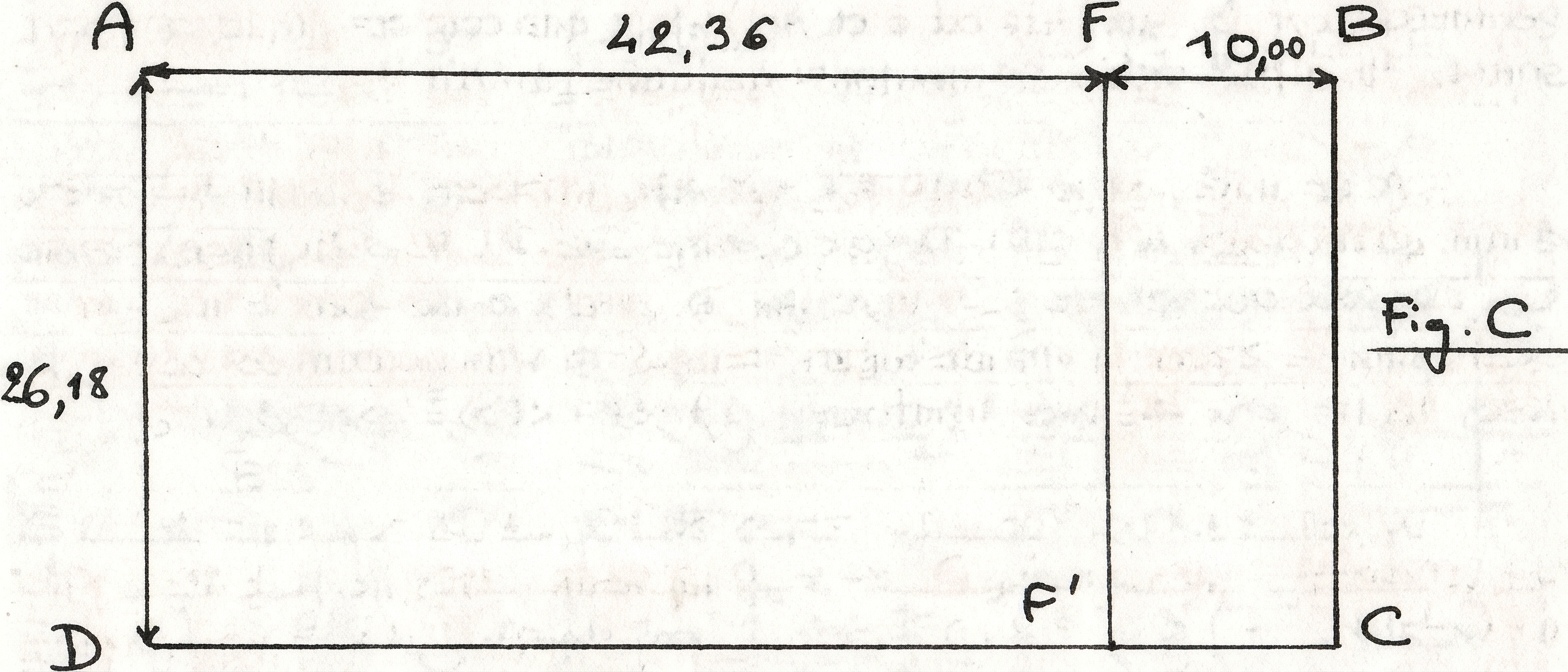 A 42,36 F 10,00 B
26,18
Fig. C
D F' C